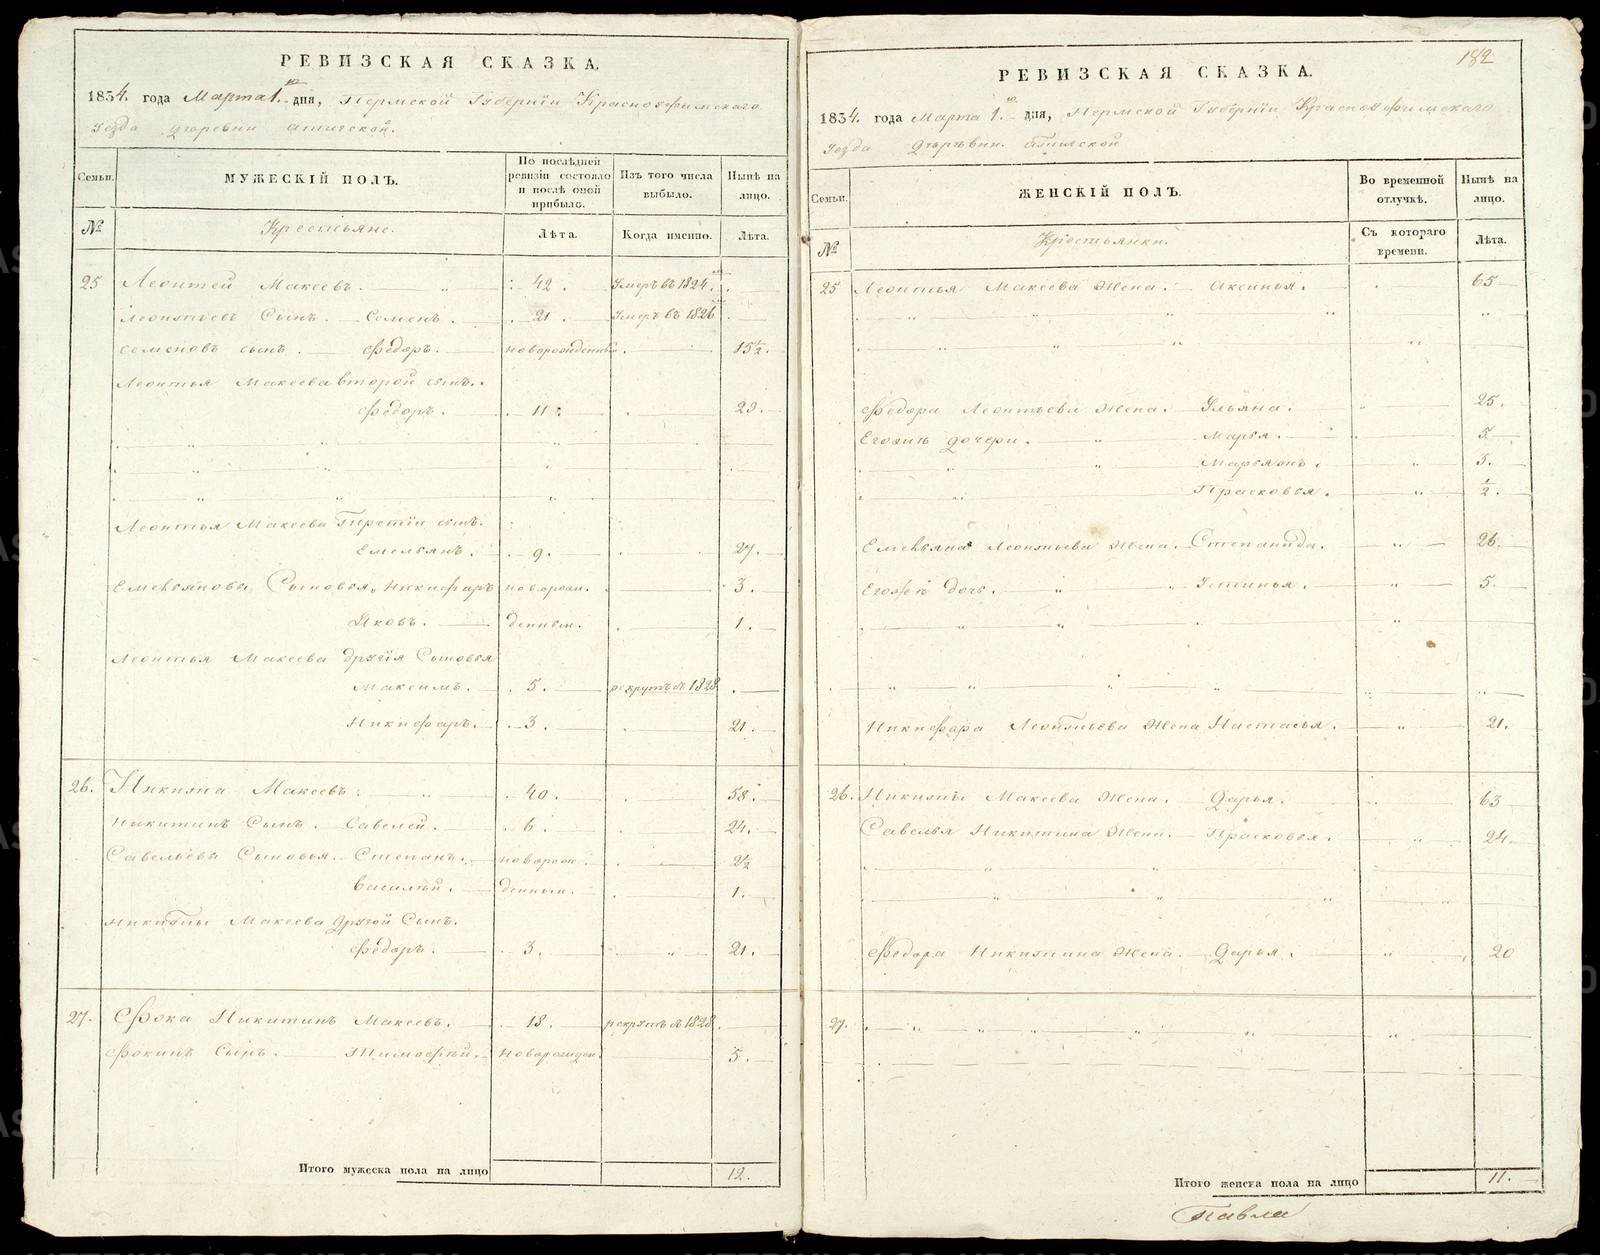 РЕВИЗСКАЯ СКАЗКА.
1834. года Марта 1.го дня, Пермской Губернїи Красноуфимскаго
Уезда деревни Атигской.
Семьи.
МУЖЕСКІЙ ПОЛЪ.
По послѣдней ревизіи состояло и послѣ оной прибыло.
Изъ того числа выбыло.
Нынѣ на лицо.
№
Крестьяне.
Лѣта.
Когда именно.
Лѣта.
25 Леонтей Макеевъ. 42. Умеръ въ 1824.
Леонтьевъ Сынъ. Семенъ. 21. Умеръ въ 1826
Семеновъ сынъ. Федоръ. новорожденный 15½.
Леонтья Макеева второй сынъ.
Федоръ. 11. 29.
Леонтья Макеева Третїй сынъ.
Емельянъ. 9. 27.
Емельяновы Сыновья, Никифаръ новорож. 3.
Яковъ. денныи. 1.
Леонтья Макеева другія Сыновья
Максимъ. 5. рекрутъ въ 1828
Никифаръ. 3. 21.
26. Никита Макеевъ. 40. 58.
Никитинъ Сынъ. Савелей. 6. 24.
Савельевы Сыновья. Степанъ. новорож. 2½
Василѣй. денныи. 1.
Никиты Макеева другой Сынъ.
Федоръ. 3. 21.
27. Фока Никитинъ Макеевъ. 18. рекрутъ въ 1828.
Фокинъ Сынъ. Тимофѣй. Новорожден. 5.
Итого мужеска пола на лицо 12.
182
РЕВИЗСКАЯ СКАЗКА.
1834. года Марта 1.го дня, Пермской Губернїи Красноуфимскаго
Уезда Деревни Атигской
Семьи.
ЖЕНСКІЙ ПОЛЪ.
Во временной отлучкѣ.
Нынѣ на лицо.
№
Крестьянки.
Съ котораго времени.
Лѣта.
25 Леонтья Макеева Жена. Аксинья. 65
Федора Леонтьева Жена. Ульяна. 25.
Егожъ дочери. Марья. 5
Марьянъ. 3.
Прасковья. ½.
Емельяна Леонтьева Жена. Степанида. 26.
Егожъ дочь. Устинья. 5.
Никифара Леонтьева Жена Настасья. 21.
26. Никиты Макеева Жена. Дарья. 63
Савелья Никитина Жена. Прасковья. 24.
Федора Никитина Жена. Дарья. 20
27.
Итого женска пола на лицо 11.
Павла